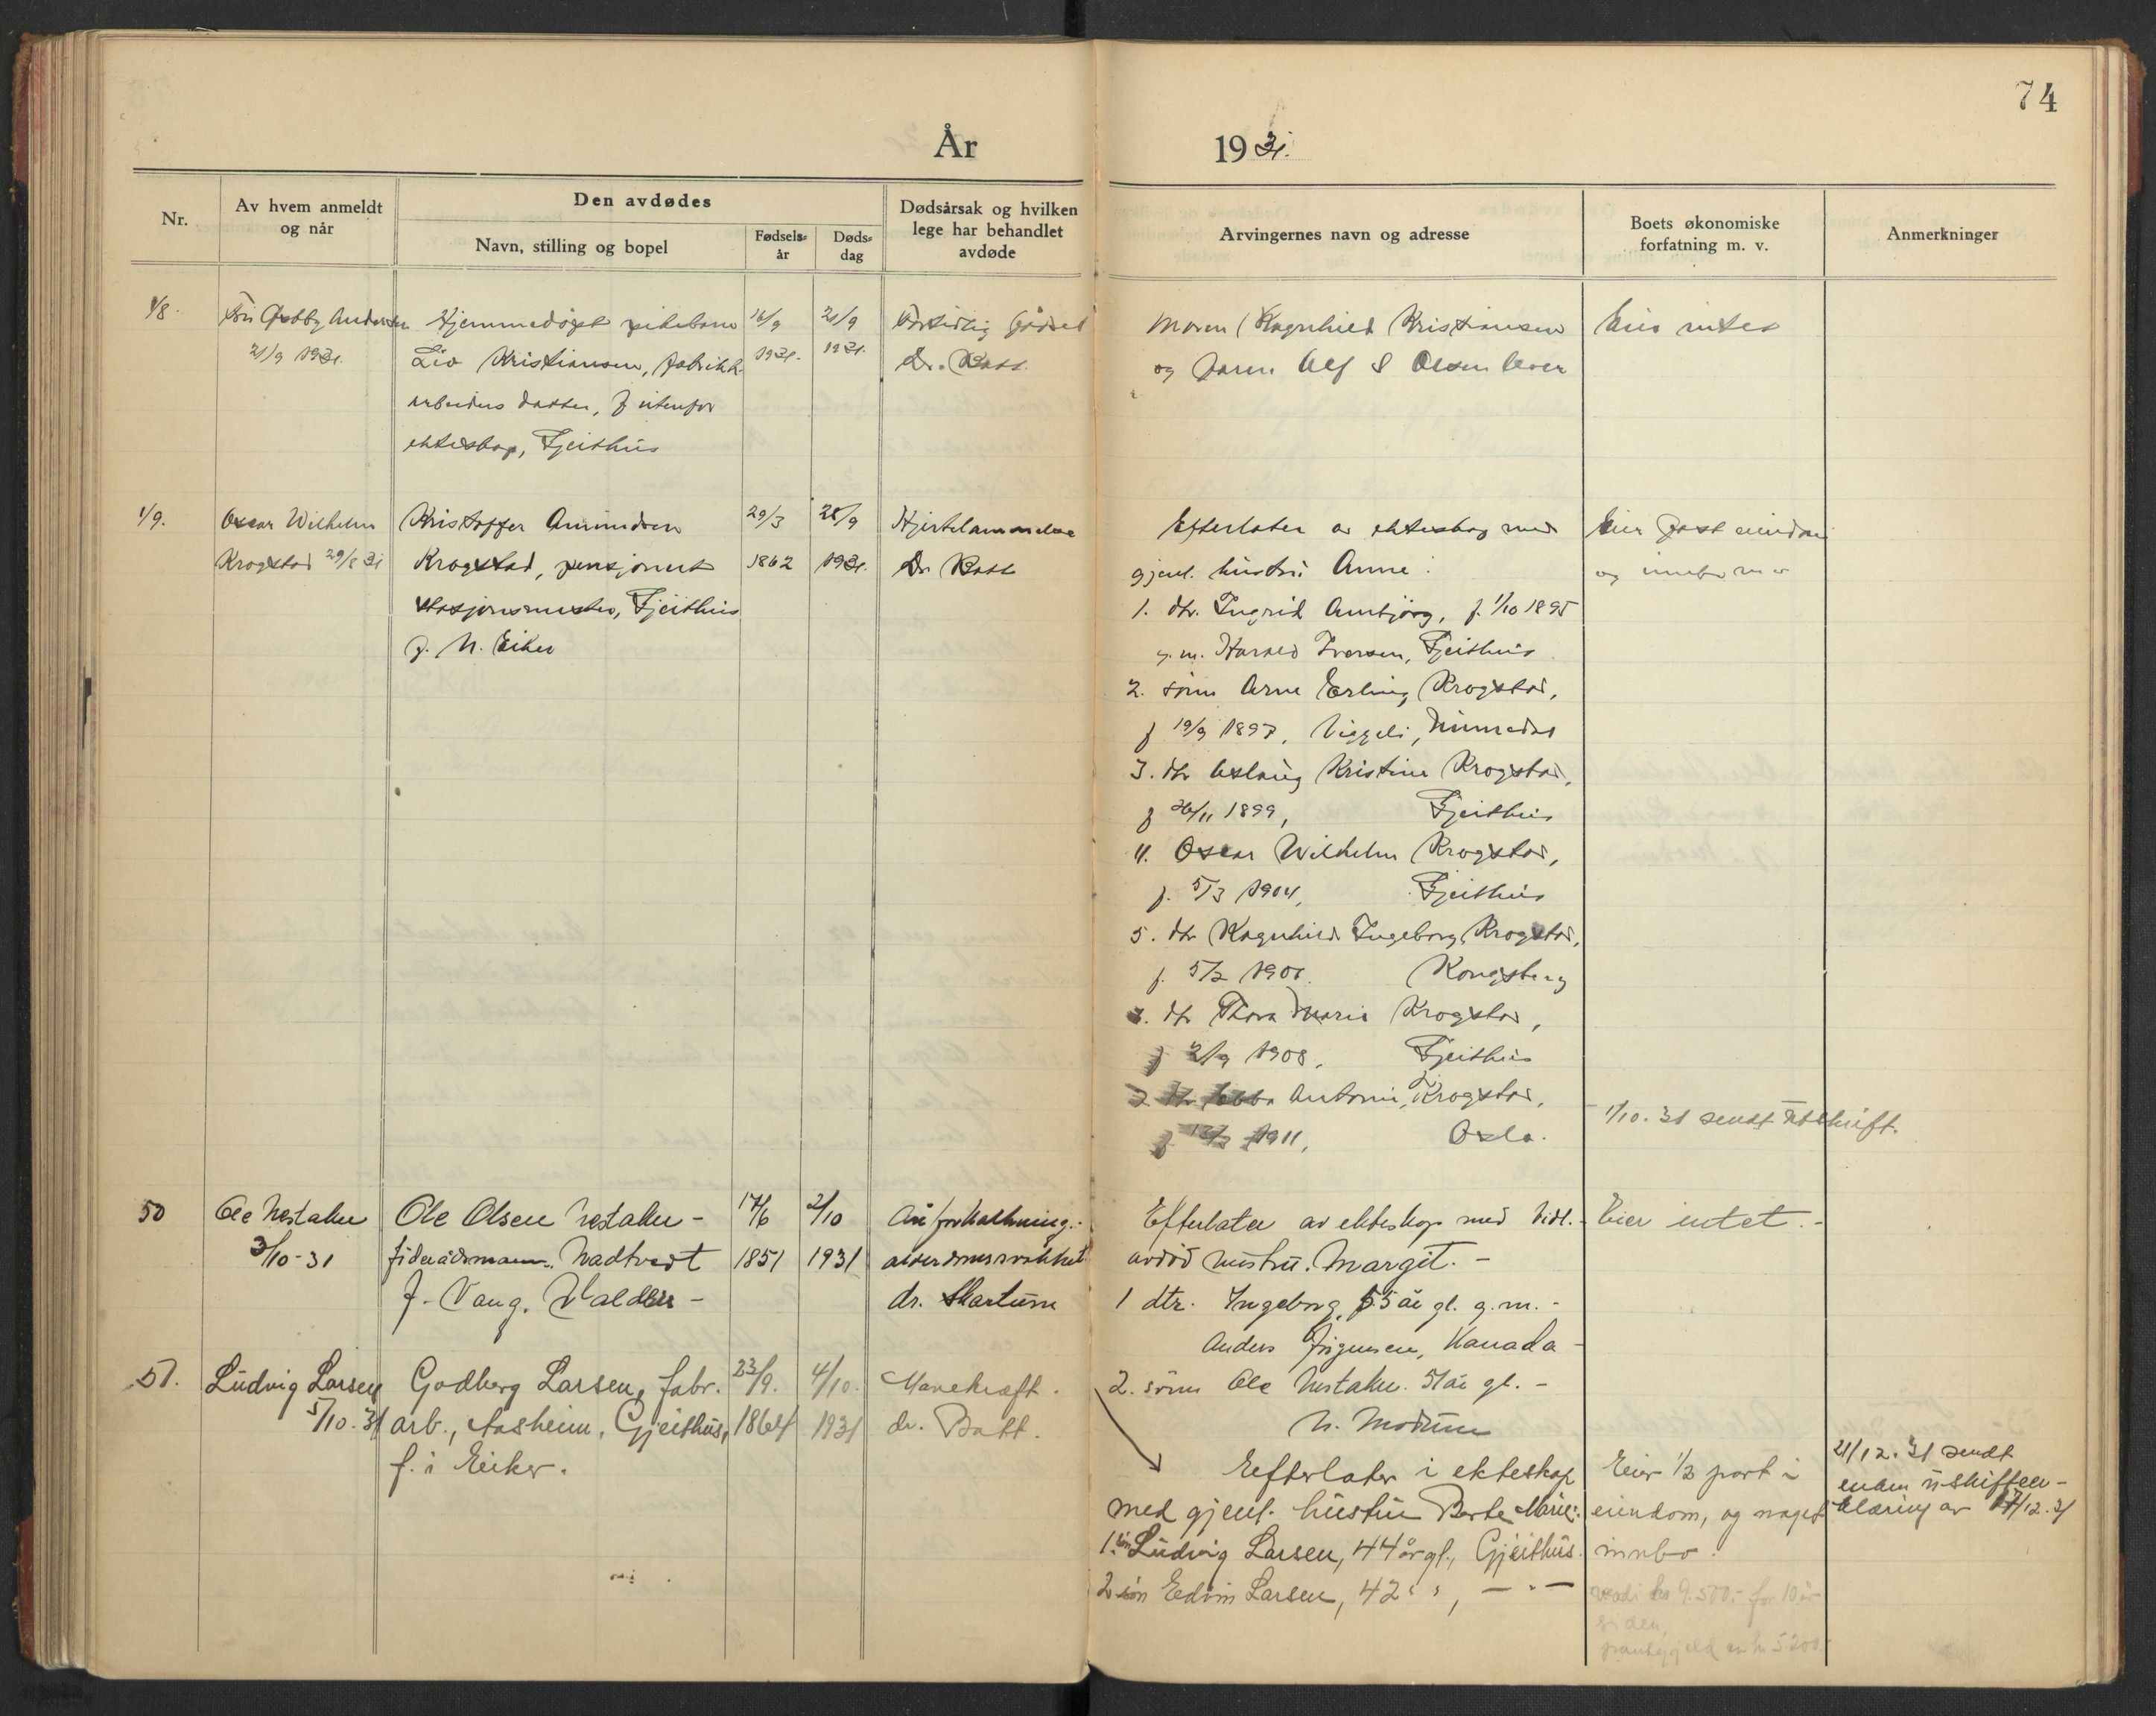 74
År 1931.
Nr.
Av hvem anmeldt og når
Den avdødes
Navn, stilling og bopel
Fødselsår
Dødsdag
Dødsårsak og hvilken lege har behandlet avdøde
Arvingernes navn og adresse
Boets økonomiske forfatning m. v.
Anmerkninger
48.
21/9 1931.
Hjemmedøpt pikebarn
Liv Kristiansen, fabrikk-
arbeiders datter, f utenfor
ekteskap, Gjeithus
16/9
1931.
21/9
1931.
Fortidlig fødsel
Dr. Batt.
Moren Ragnhild Kristiansen
og faren Alf S Olsen lever
Eier intet
49.
Oscar Wilhelm
Krogstad 29/8 31
Kristoffer Amundsen
Krogstad, pensjonert
stasjonsmester, Gjeithus
f. N. Eiker
29/3
1862
28/9
1931.
Hjertelammelse
Dr Batt
Efterlater av ekteskap med
gjenl. hustru Anne.
1. dtr. Ingrid Annbjörg, f. 1/10 1895
g. m. Harald Iversen, Gjeithus
2. sönn Arne Erling Krogstad,
f 19/9 1897, Veggli, Numedal
3. dtr Aslaug Kristine Krogstad,
f 26/11 1899, Gjeithus
4. Oscar Wilhelm Krogstad,
f. 5/3 1904, Gjeithus
5. dtr Ragnhild Ingeborg Krogstad,
f. 5/2 1906. Kongsberg
dtr Thora Marie Krogstad,
f 2/9 1908, Gjeithus
7 dtr Ebba Antonie Krogstad,
1911, Oslo.
Eier fast eiendom
og innbo
1/10. 31 sendt utskrift.
50
Ole Nestaker
3/10-31
Ole Olsen Nestaker -
föderådsmann. Nadtvedt
f. Vang. Valders -
17/6
1851
2/10
1931
Åreforkalkning.-
alderdomssvakhet
dr. Skartum
Efterlater av ekteskap med tidl.-
avdöd hustru. Margit. -
1 dtr. Ingeborg, 55 år gl. g.m. -
Anders Jörgensen, Kanada -
2. sönn Ole Nestaker. 51 år gl. -
N. Modum
Eier intet. -
51.
Ludvig Larsen
5/10.31
Godberg Larsen, fabr.
arb., Aasheim, Gjeithus,
f. i Eiker.
23/9.
1864
4/10.
1931
Mavekræft.
dr. Batt.
Eefterlater i ekteskap
med gjenl. hustru Berte Marie:
1. sön Ludvig Larsen, 44 år gl., Gjeithus.
2 sön Edvin Larsen, 42 " ", — " —
Eier 1/2 part i
eiendom, og noget
innbo.
verdi kr 9.500.- for 10 år
siden,
pantegjeld er kr 5200.-
21/12. 31 sendt
enken uskifteer-
klæring av 17/12. 31